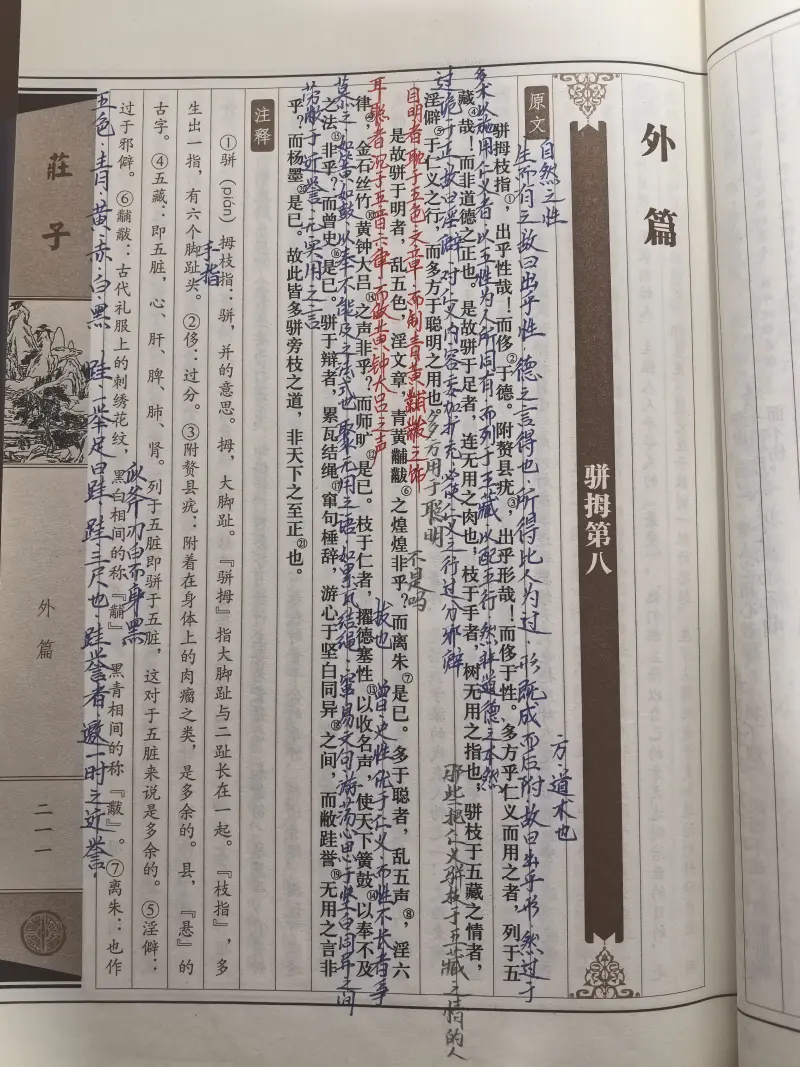 外篇
骈拇第八
原文
自然之性
方，道术也
骈拇枝指①，出乎性哉！而侈②于德。附赘县疣③，出乎形哉！而侈于性。多方乎仁义而用之者，列于五
生而有之，故曰出乎性，德之言得也，所得比人为过，形既成而后附，故曰出乎形，然过于
藏④哉！而非道德之正也。是故骈于足者，连无用之肉也，枝于手者，树无用之指也，骈枝于五藏之情者，
多术以施用仁义者，以五性为人所同有，而列于五藏，以配五行，然非道德之本然
那些把仁义骈枝于五藏之情的人
淫僻⑤于仁义之行，而多方于聪明之用也。
多方用于聪明
不是吗
是故骈于明者，乱五色，淫文章，青黄黼黻⑥之煌煌非乎？而离朱⑦是已。多于聪者，乱五声⑧，淫六
目明者
律⑨，金石丝竹⑩黄钟大吕⑪之声非乎？而师旷⑫是已。枝于仁者，擢德塞性⑬以收名声，使天下簧鼓⑭以奉不及
而制青黄黼黻之饰
耳聪者
五音六律，而
黄钟大吕之声
拔也
之法⑮非乎？而曾史⑯是已。骈于辩者，累瓦结绳⑰窜句棰辞，游心于坚白同异⑱之间，而敝跬誉⑲无用之言非
乎？而杨墨⑳是已。故此皆多骈旁枝之道，非天下之至正㉑也。
劳敝于近誉无实用之言
注释
①骈（pián）拇枝指：骈，并的意思。拇，大脚趾。『骈拇』指大脚趾与二趾长在一起。『枝指』，多
生出一指，有六个脚趾头。②侈：过分。③附赘县疣：附着在身体上的肉瘤之类，是多余的。县，『悬』的
手指
古字。④五藏：即五脏，心、肝、脾、肺、肾。列于五脏即骈于五脏，这对于五脏来说是多余的。⑤淫僻：
过于邪僻。⑥黼黻：古代礼服上的刺绣花纹，黑白相间的称『黼』，黑青相间的称『黻』。⑦离朱：也作
五色，青黄赤白黑
跬，一举足曰跬，跬三尺也，跬誉者，邀一时之近誉，
莊子
外篇
二一一